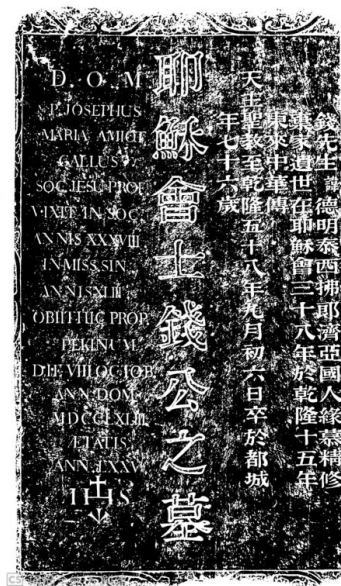 錢先生諱德明泰西拂耶濟亞國人緣慕精修
棄家遺世在耶穌會三十八年於乾隆十五年
東來中華傳
天主聖教至乾隆五十八年九月初六日卒於都城
年七十六歲
耶穌會士錢公之墓
D. O. M
P. JOSEPHUS
MARIA AMIOT
GALLUS
SOC. JESU PROF
VIXIT IN SOC.
ANNIS XXXVIII
IN MISS. SIN.
ANNIS XLIII
OBIIT HUC PROP
PEKINUM
DIE VIII OCTOB
ANN. DOM
MDCCLXLIII
ÆTATIS
ANN. LXXV
IHS